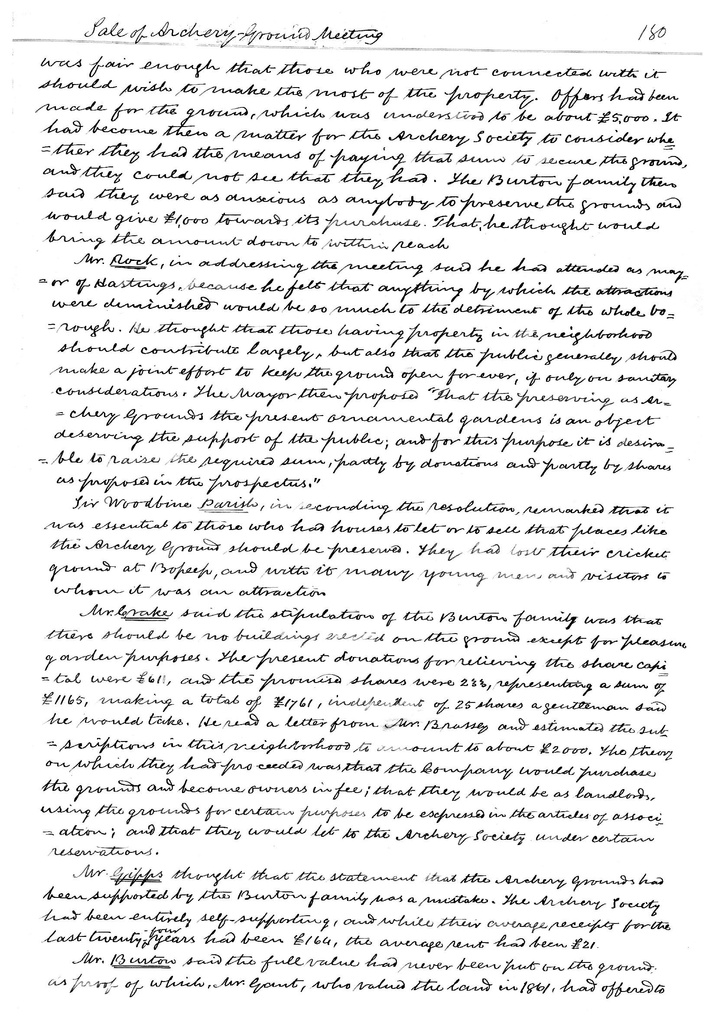 Sale of Archery-Ground, Meeting 180
was fair enough that those who were not connected with it
should wish to make the most of the property. Offers had been
made for the ground, which was understood to be about £5,000. It
had become then a matter for the Archery Society to consider whe=
=ther they had the means of paying that sum to secure the ground,
and they could not see that they had. The Burton family then
said they were as anxious as anybody to preserve the grounds and
would give £1,000 towards its purchase. That, he thought would
bring the amount down to within reach
Mr. Rock, in addressing the meeting said he had attended as may=
=or of Hastings, because he felt that anything by which the attractions
were deminished would be so much to the detriment of the whole bo=
=rough. He thought that those having property in the neighborhood
should contribute largely, but also that the public generally should
make a joint effort to keep the ground open for ever, if only on sanitary
considerations. The Mayor then proposed "That the preserving as Ar=
=chery Grounds the present ornamental gardens is an object
deserving the support of the public; and for this purpose it is desira=
=ble to raise the required sum, partly by donations and partly by shares
as proposed in the prospectus."
Sir Woodbine Parish, in seconding the resolution, remarked that it
was essential to those who had houses to let or to sell that places like
the Archery Ground should be preserved. They had lost their cricket
ground at Bopeep, and with it many young men and visitors to
whom it was an attraction
Mr. said the stipulation of the Burton family was that
there should be no buildings erected on the ground except for pleasure
garden purposes. The present donations for relieving the share capi
=tal were and the promised shares were representing a sum of
£1165, making a total of £1761, independent of 25 shares a gentleman said
he would take. He read a letter from Mr. Brassey and estimated the sub
=scriptions in this neighborhood to amount to about £2000. The theory
on which they had proceeded was that the Company would purchase
the grounds and become owners in fee; that they would be as landlords,
using the grounds for certain purposes to be expressed in the articles of associ
=ation; and that they would let to the Archery Society under certain
reservations.
Mr. Gipps thought that the statement that the Archery Grounds had
been supported by the Burton family was a mistake. The Archery Society
had been entirely self-supporting, and while their average receipts for the
last twenty-four years had been £164, the average rent had been £21.
Mr. Burton said the full value had never been put on the ground.
as proof of which, Mr. Gant, who valued the land in 1861, had offered to